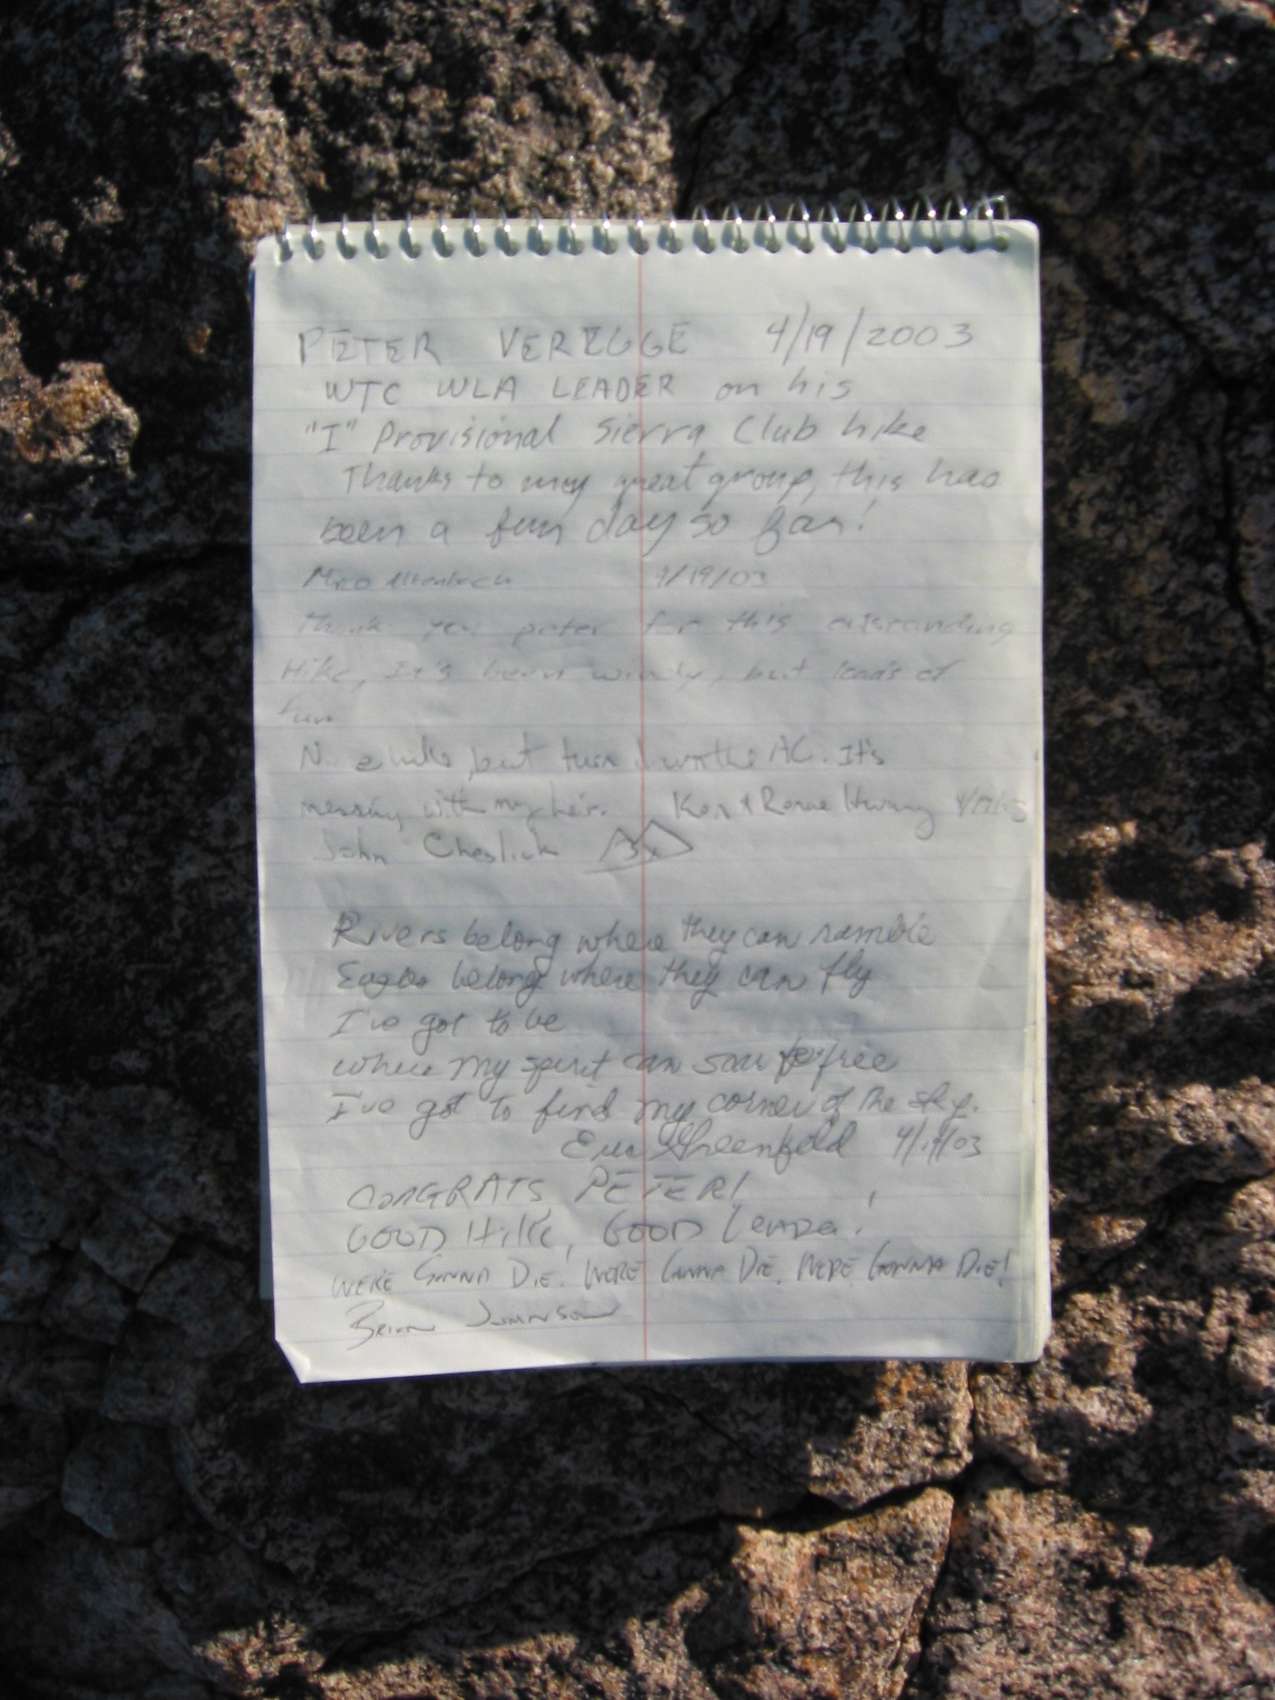 PETER VEREGGE 4/19/2003
WTC WLA LEADER on his
"I" Provisional Sierra Club hike
Thanks to my great group, this has
been a fun day so far!
4/19/03
Thank you peter for this outstanding
Hike, It's been windy, but loads of
fun
but turn down the AC. It's
messing with my hair. Ken &
John Cheslick
Rivers belong where they can ramble
Eagles belong where they can fly
I've got to be
where my spirit can soar free
I've got to find my corner of the sky.
Greenfeld 4/19/03
CONGRATS, PETER!
GOOD Hike, GOOD Leader!
WE'RE GONNA DIE! WE'RE GONNA DIE, WE'RE GONNA DIE!
Brian Johnson